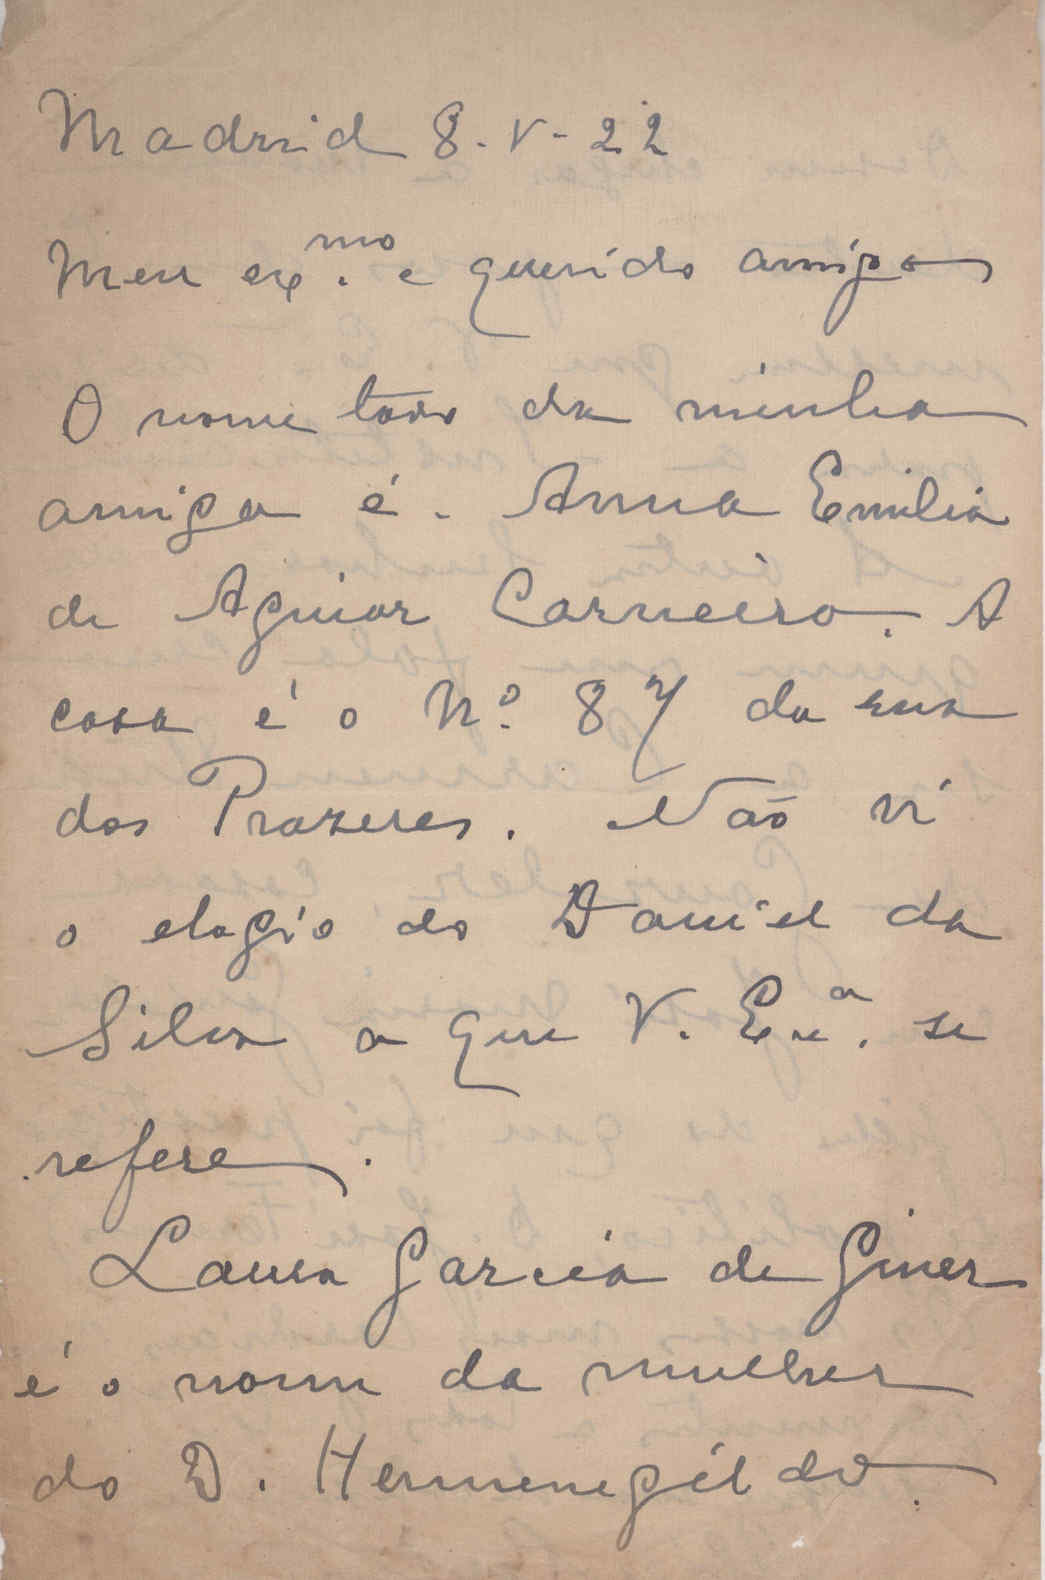 Madrid 8-V-22
Meu ex.mo e querido amigo
O nome todo da minha
amiga é. Anna Emilia
de Aguiar Carneiro. A
casa é o Nº. 87 da rua
dos Prazeres. Não vi
o elogio do Daniel da
Silva a que V. Ex.a se
refere.
Laura Garcia de Giner
é o nome da mulher
do D. Hermenegildo.